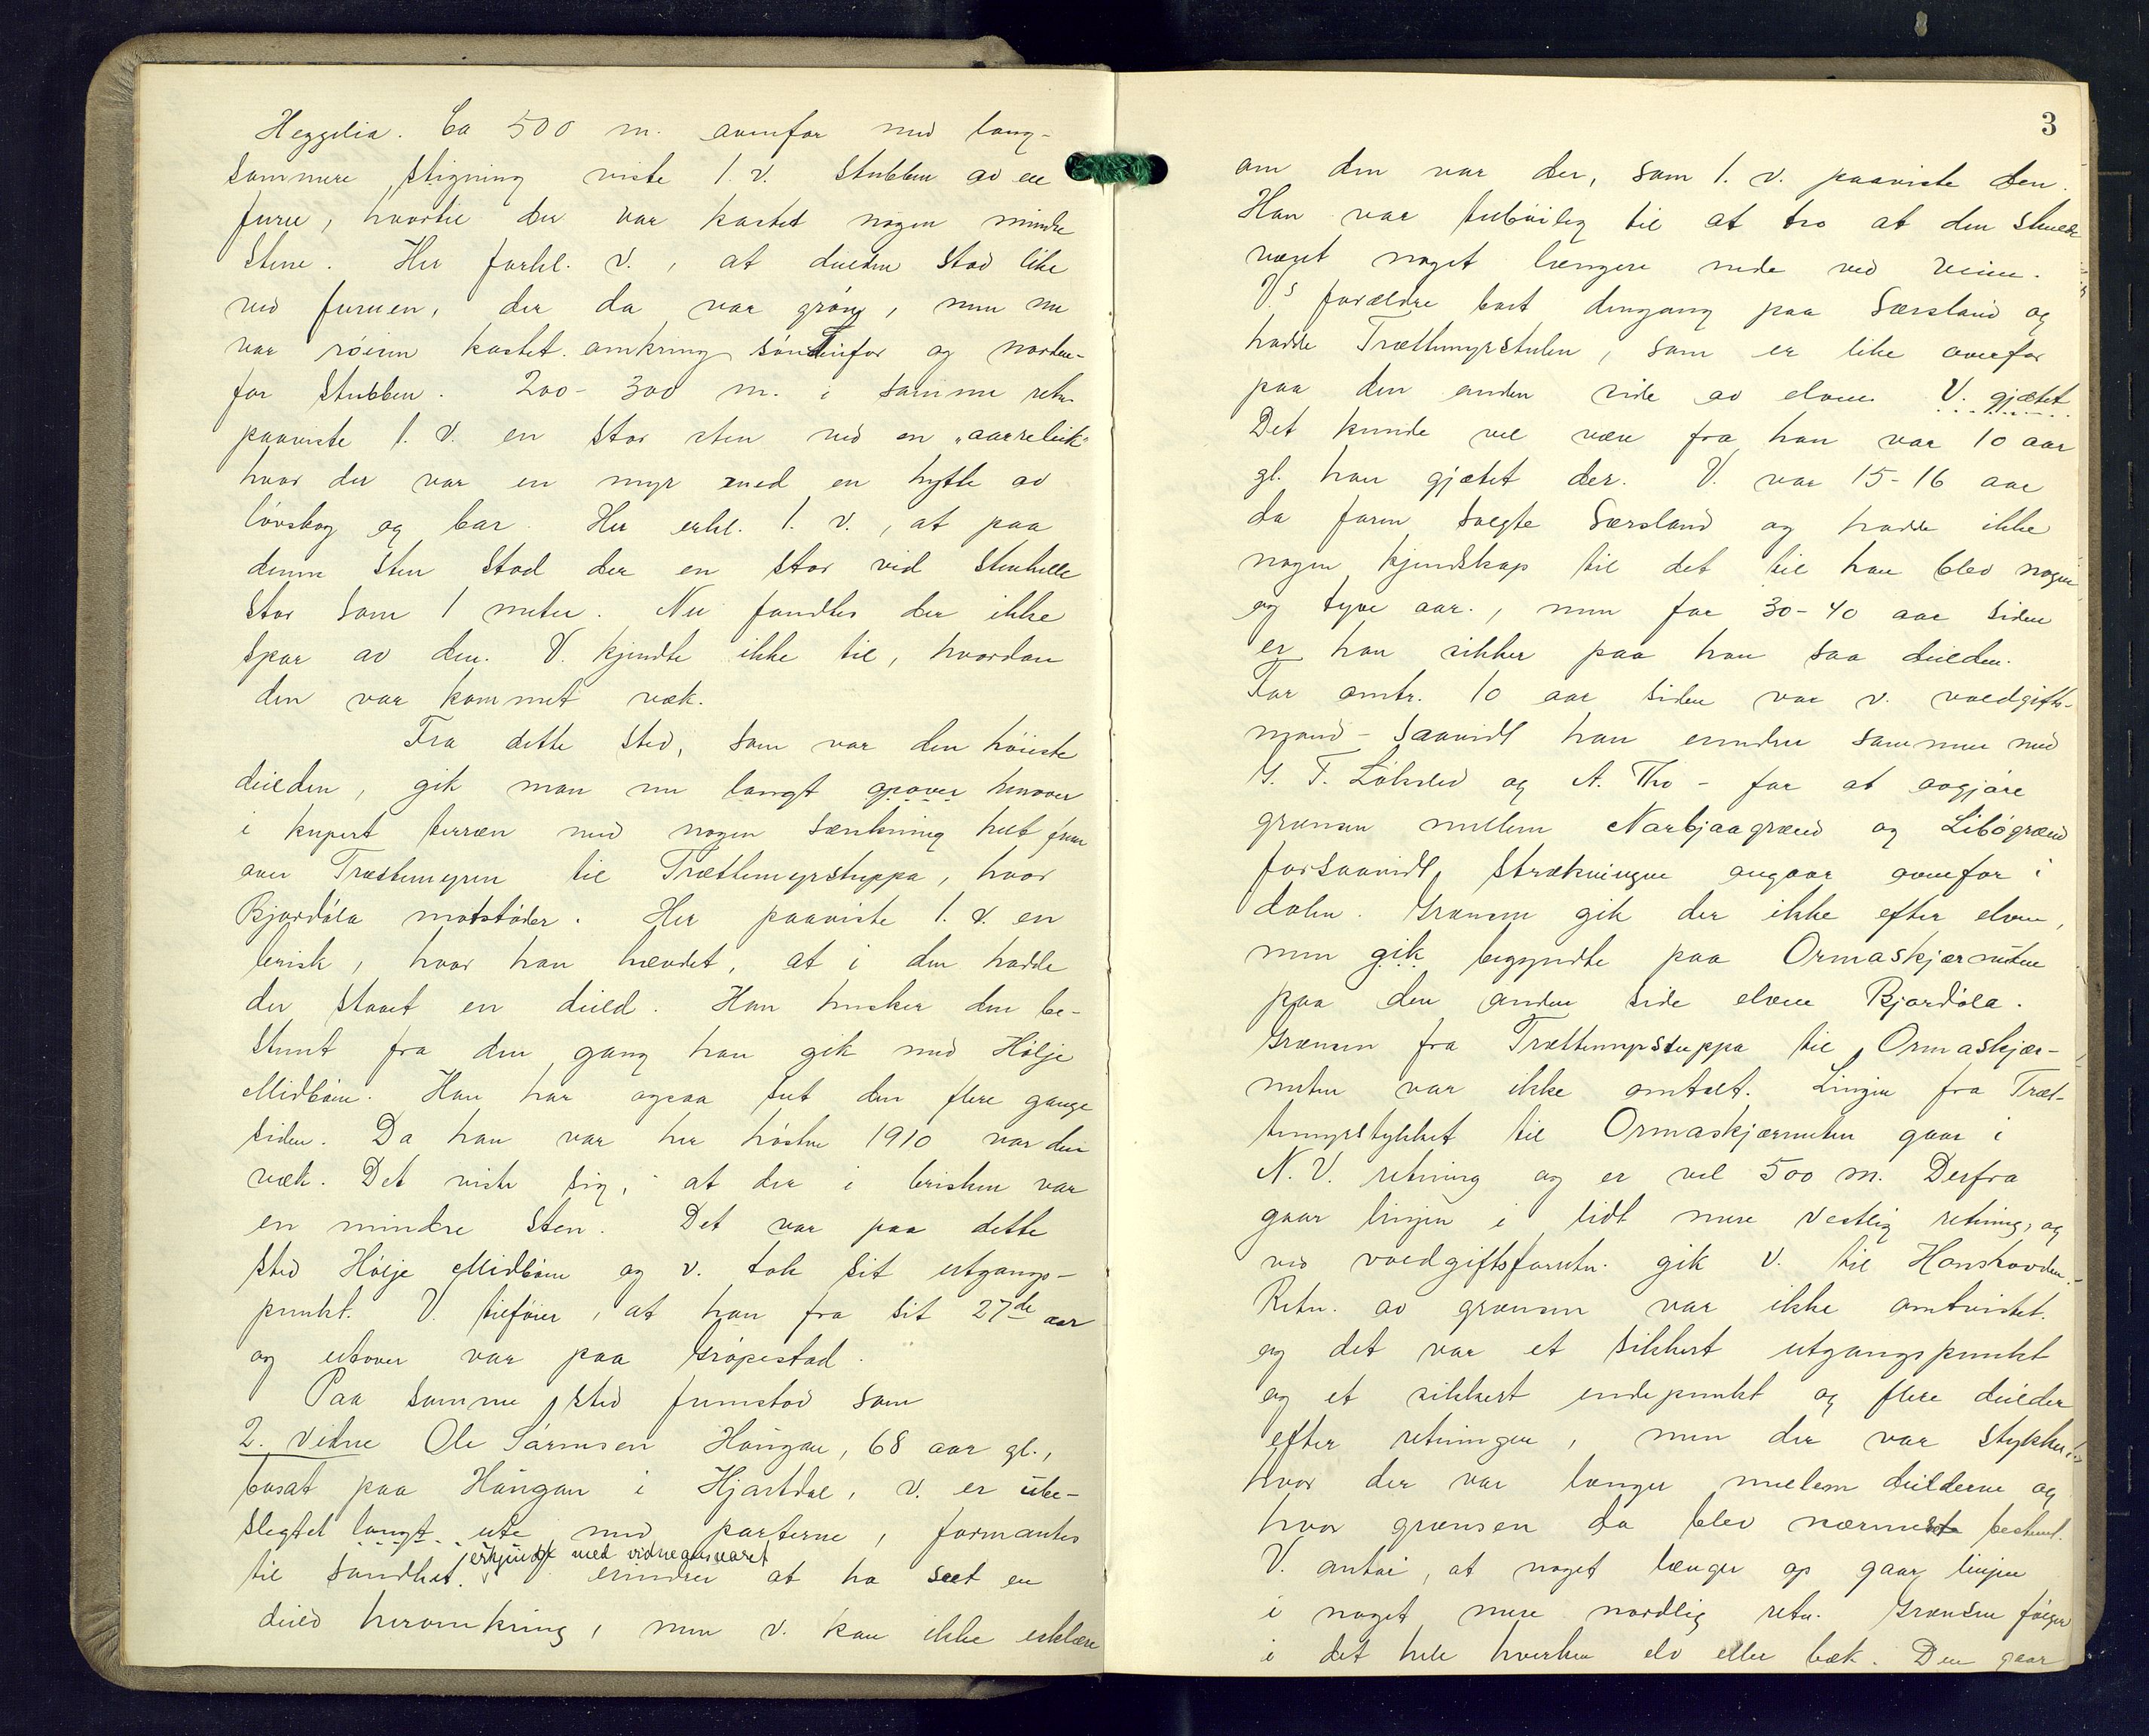 Heggelia. Ca 500 m. ovenfor med lang-
sommere stigning viste 1. v. stubben av en
furu, hvortil der var kastet nogen mindre
stene. Her forkl. v., at deilden stod like
ved furuen, der da var grøn, men nu
var røisen kastet omkring søndenfor og norden-
for stubben. 200-300 m. i samme retn.
paaviste 1. v. en stor sten ved en "aarreleik"
hvor der var en myr med en hytte av
løvskog og bar. Her erkl. 1. v., at paa
denne sten stod der en stor vid stenhelle
stor som 1 meter. Nu fandtes der ikke
spor av den. V. kjendte ikke til, hvordan
den var kommet væk.
Fra dette sted, som var den høieste
deilden, gik man nu langt opover henover
i kupert terræn med nogen sænkning helt frem
over Trættemyren til Trættemyrstuppa, hvor
Bjordøla motstøder. Her paaviste 1. v. en
brisk, hvor han hævdet, at i den hadde
der staaet en deild. Han husker den be-
stemt fra den gang han gik med Hølje
Midbøen. Han har ogsaa set den flere gange
siden. Da han var her høsten 1910 var den
væk. Det viste sig, at der i brisken var
en mindre sten. Det var paa dette
sted Hølje Midbøen og v. tok sit utgangs-
punkt. V. tilføier, at han fra sit 27de aar
og utover var paa Grøpestad.
Paa samme sted fremstod som
2. vidne Ole Sørensen Haugan, 68 aar gl.,
bosat paa Haugan i Hjartdal, v. er ube-
slegtet langt ute med parterne, formantes
til sandhet. erindrer at ha seet en
erkjendt med vidneansvaret
deild heromkring, men v. kan ikke erklære
3
om den var der, som 1. v. paaviste den.
Han var tilbøilig til at tro at den skulde
været noget længere nede ved veien.
V.s forældre bort dengang paa Særsland og
hadde Trættemyrstulen, som er like overfor
paa den anden side av elven. V. gjætet
Det kunde vel være fra han var 10 aar
gl. han gjætet der. V. var 15-16 aar
da faren solgte Særsland og hadde ikke
nogen kjendskap til det til han blev nogen
og tyve aar., men for 30-40 aar siden
er han sikker paa han saa deilden.
For omtr. 10 aar siden var v. voldgifts-
mand - saavidt han erindrer sammen med
G. T. Løkslid og A. Tho - for at avgjøre
grænsen mellem Nørbjaagrænd og Libøgrænd
forsaavidt strækningen angaar ovenfor i
dalen. Grænsen gik der ikke efter elven,
men gik begyndte paa Ormaskjærnuten
paa den anden side elven Bjordøla.
Grænsen fra Trættemyrstuppa til Ormaskjær-
nuten var ikke omtalt. Linjen fra Træt-
temyrstykket til Ormaskjærnuten gaar i
N. V. retning og er vel 500 m. Derfra
gaar linjen i lidt mere vestlig retning, og
ved voldgiftsforretn. gik v. til Hanskovden.
Retn. av grænsen var ikke omtvistet.
og det var et sikkert utgangspunkt
og et sikkert endepunkt og flere deilder
efter retningen, men der var stykker
hvor der var længer mellem deilderne og
hvor grænsen da blev nærmeste bestemt.
V. antar, at noget længer op gaar linjen
i noget mere nordlig retn. Grænsen følger
i det hele hverken elv eller bæk. Den gaar